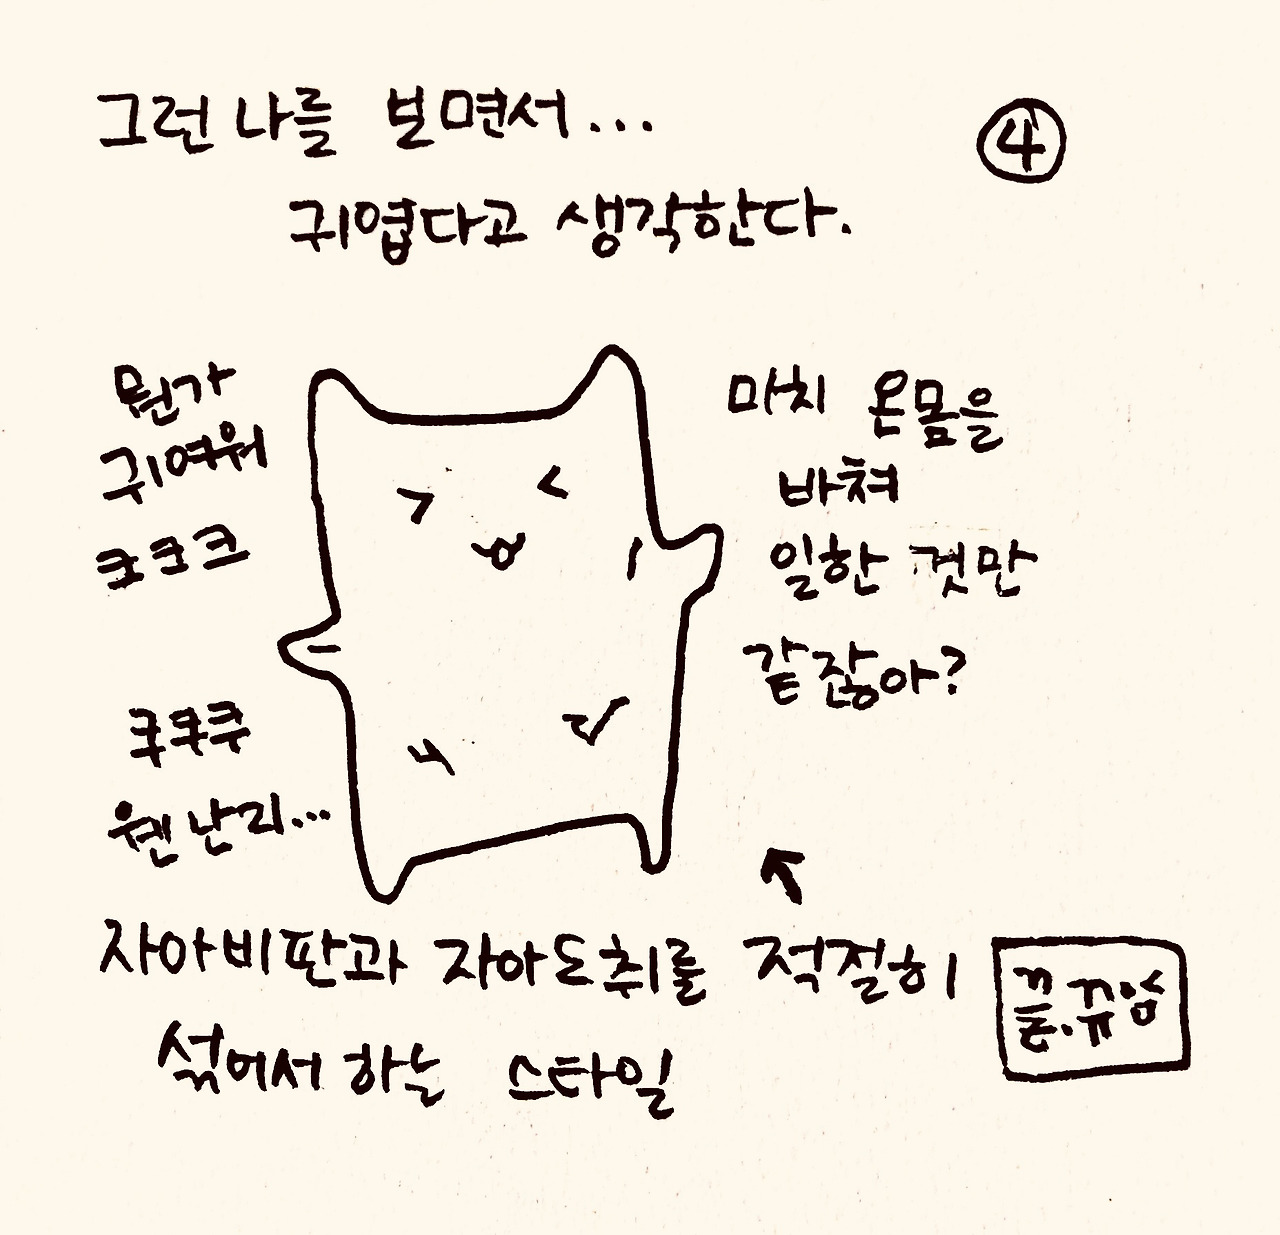 그런 나를 보면서...
④
귀엽다고 생각한다.
뭔가
귀여워
ㅋㅋㅋ
마치 온몸을
바쳐
일한 것만
같잖아?
쿠쿠쿠
웬 난리...
자아비판과 자아도취를 적절히
섞어서 하는 스타일
끝.뀨앙